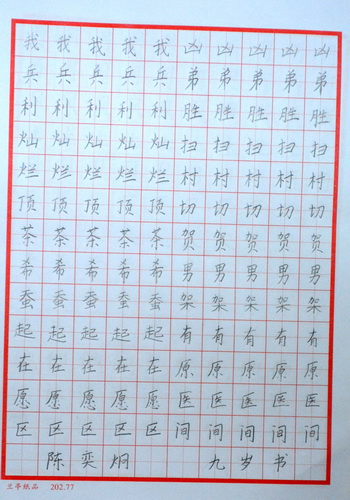 我我我我我凶凶凶凶凶
兵兵兵兵兵弟弟弟弟弟
利利利利利胜胜胜胜胜
灿灿灿灿灿扫扫扫扫扫
烂烂烂烂烂村村村村村
顶顶顶顶顶切切切切切
茶茶茶茶茶贺贺贺贺贺
希希希希希男男男男男
蚕蚕蚕蚕蚕架架架架架
起起起起起有有有有有
在在在在在原原原原原
愿愿愿愿愿医医医医医
区区区区区间间间间间
陈奕炯 九岁书
兰亭纸品 202.77